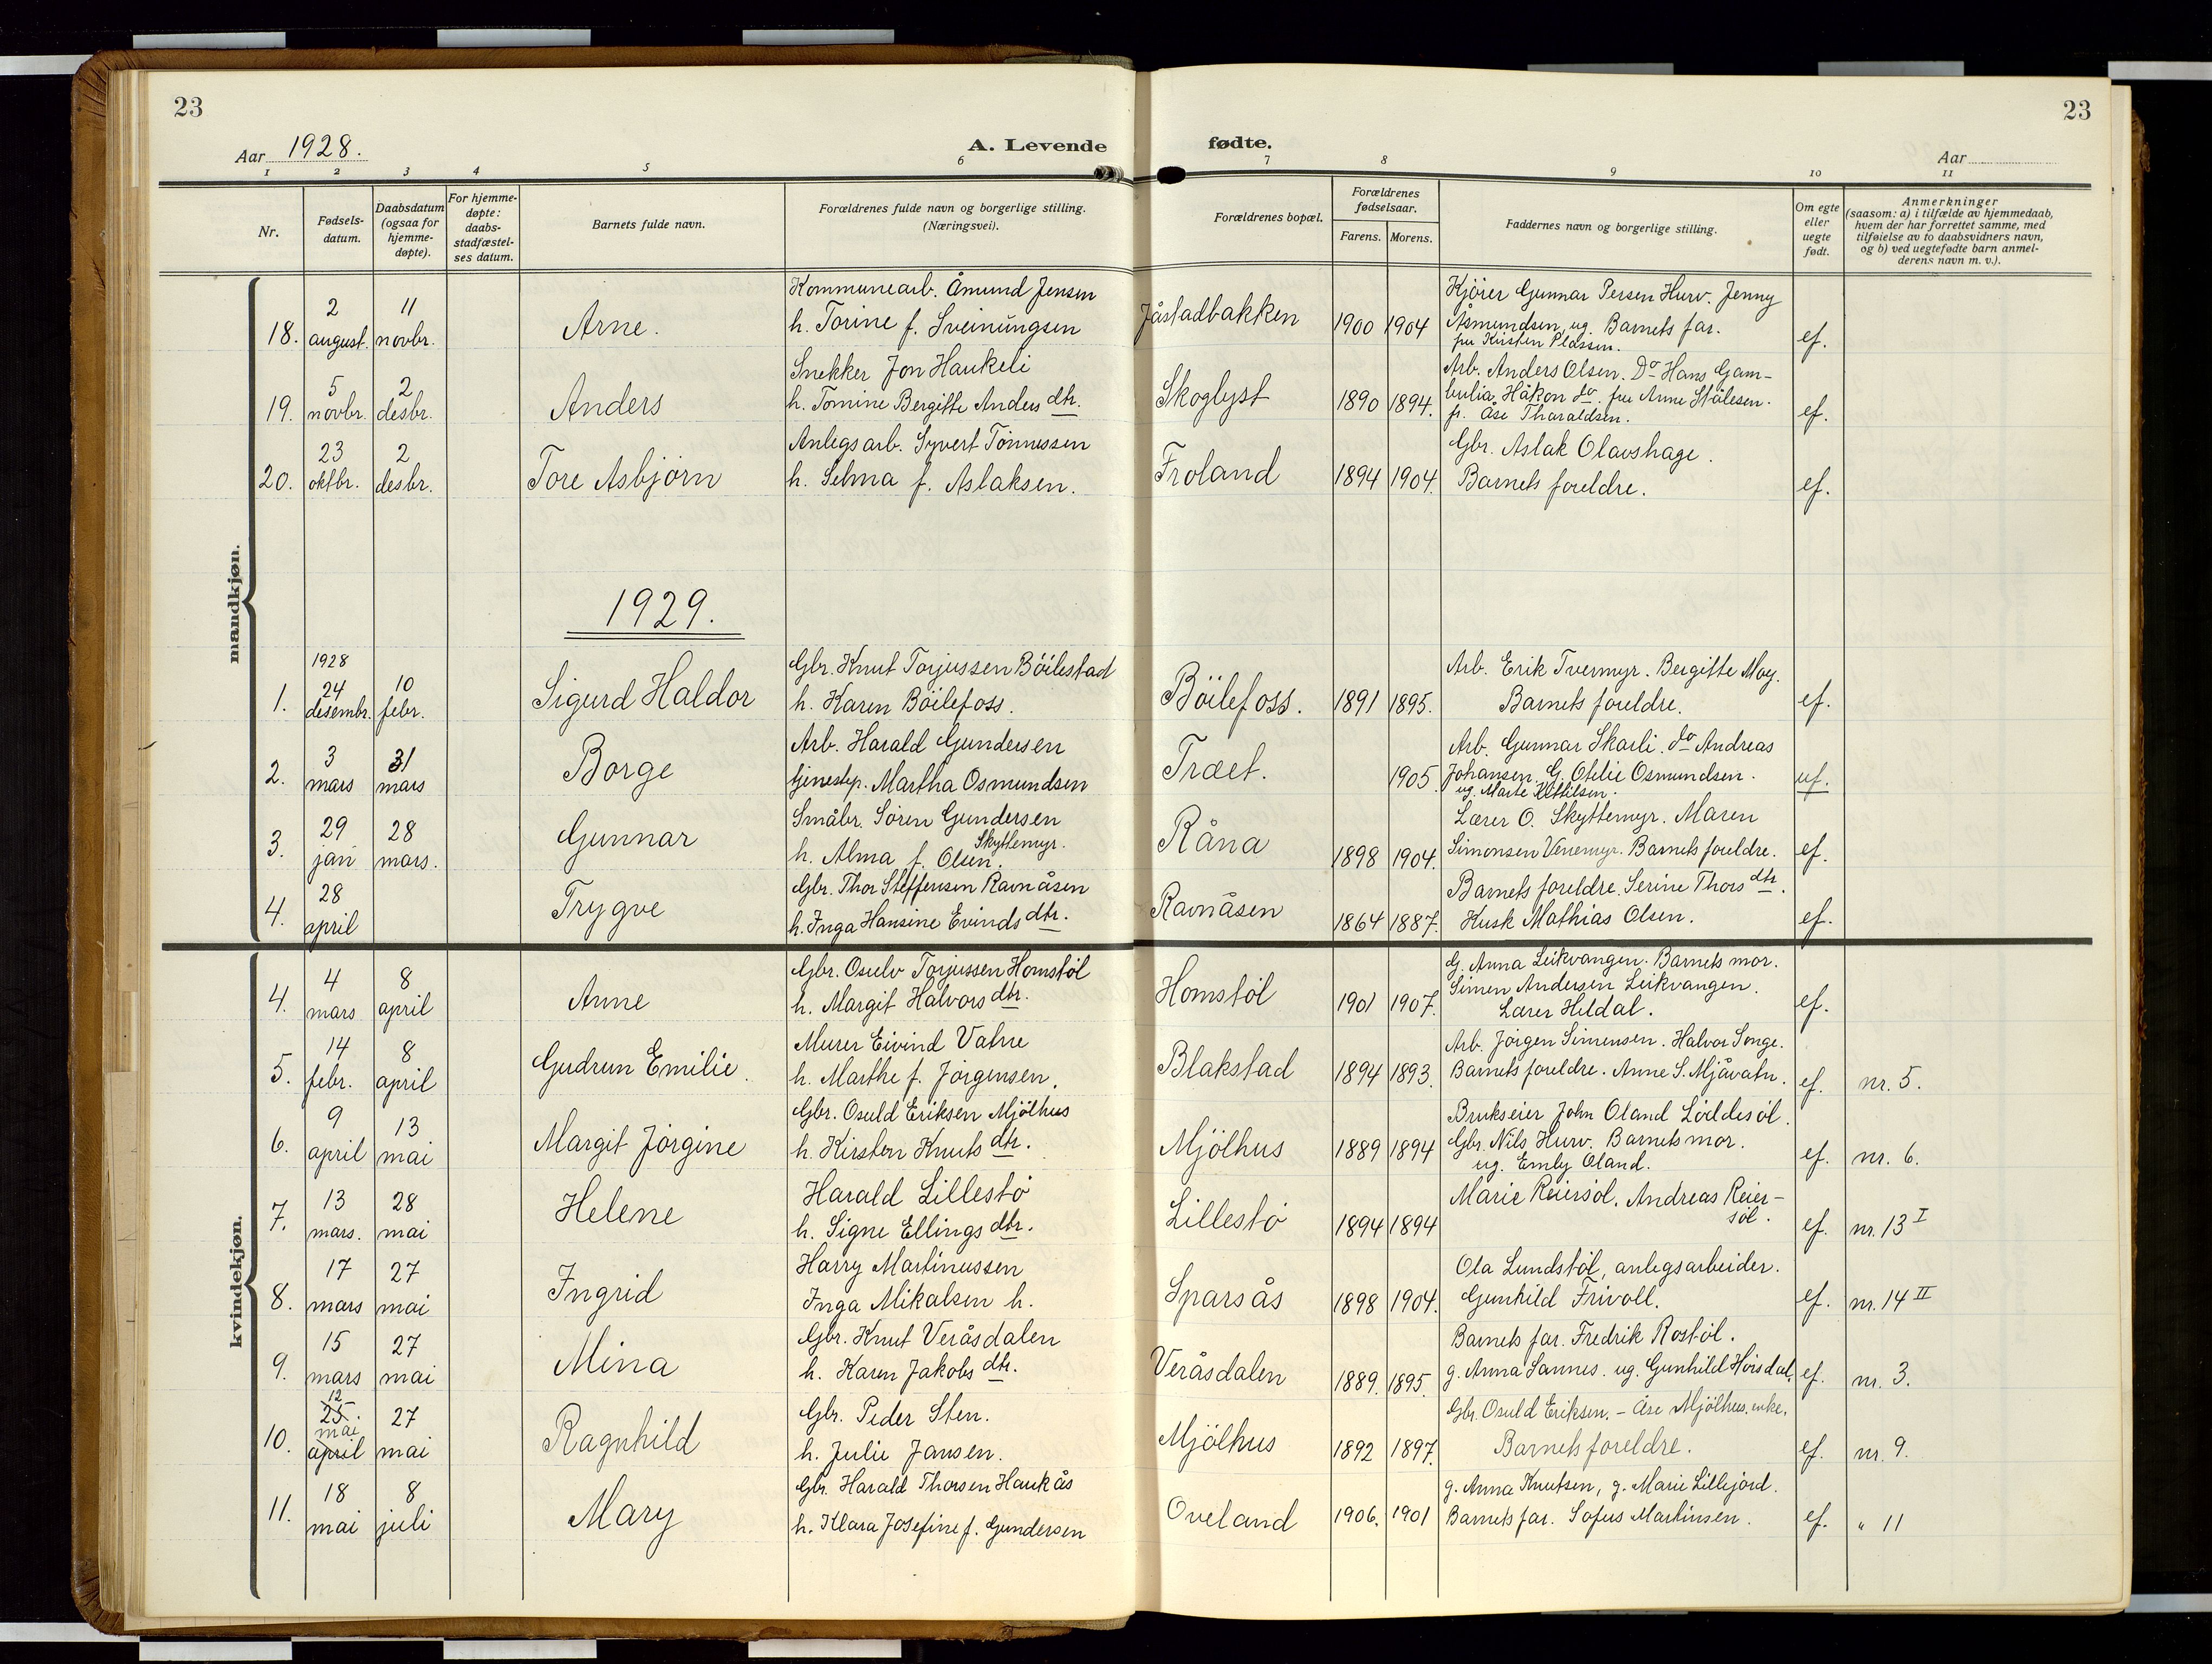 23
23
Aar 1928.
A. Levende
fødte.
Aar
1 2 3 4 5 6 7 8 9 10 11
Nr.
Fødsels-
datum.
Daabsdatum
(ogsaa for
hjemme-
døpte).
For hjemme-
døpte:
daabs-
stadfæstel-
ses datum.
Barnets fulde navn.
Forældrenes fulde navn og borgerlige stilling.
(Næringsvei).
Forældrenes bopæl.
Forældrenes
fødselsaar.
Farens. Morens.
Faddernes navn og borgerlige stilling.
Om egte
eller
uegte
født.
Anmerkninger
(saasom: a) i tilfælde av hjemmedaab,
hvem der har forrettet samme, med
tilføielse av to daabsvidners navn,
og b) ved uegtefødte barn anmel-
derens navn m. v.).
mandkjøn.
18. 2 august. 11 novbr. Arne.
Kommunearb. Åmund Jensen
h. Torine f. Sveinungsen
Jåstadbakken 1900 1904
Kjörer Gunnar Persen Hurv. Jenny
Åsmundsen, ug. Barnets far.
fru Kristen Plassen.
ef.
19. 5 novbr. 2 desbr. Anders
Snekker Jon Haukeli
h. Tomine Bergitte Anders dtr.
Skoglyst 1890 1894.
Arb. Anders Olsen. Do Hans Gam-
Håkon do. fru Anne Stålesen.
fr. Åse Tharaldsen.
ef.
20. 23 oktbr. 2 desbr. Tore Asbjörn
Anlegsarb. Syvert Tönnessen
h. Selma f. Aslaksen.
Froland 1894 1904.
Gbr. Aslak Olavshage.
Barnets foreldre.
ef.
1929.
1. 1928 24 desembr. 10 febr. Sigurd Haldor
Gbr. Knut Torjussen Böilestad
h. Karen Böilefoss.
Böilefoss. 1891 1895.
Arb. Erik Tvermyr. Bergitte Moy.
Barnets foreldre.
ef.
2. 3 mars 31 mars Borge
Arb. Harald Gundersen
tjenestep. Martha Osmundsen
Træet. 1905
Arb. Gunnar Skarli. do Andreas
Johansen. G. Otilie Osmundsen.
ug. Marte Kittilsen.
uf.
3. 29 jan 28 mars. Gunnar
Småbr. Sören Gundersen
Skyttemyr.
h. Alma f. Olsen.
Råna 1898 1904.
Lærer O. Skyttemyr. Maren
Simonsen Venemyr. Barnets foreldre.
ef.
4. 28 april Trygve
Gbr. Thor Steffensen Ravnåsen
h. Inga Hansine Evinds dtr.
Ravnåsen 1864 1887.
Barnets foreldre. Serine Thors dtr.
Kusk Mathias Olsen.
ef.
kvindekjøn.
4. 4 mars 8 april Anne
Gbr. Osulv Torjussen Homstöl
h. Margit Halvors dtr.
Homstöl 1901 1907.
G. Anna Leikvangen. Barnets mor.
Simen Andersen Leikvangen.
Lærer Heldal.
ef.
5. 14 febr. 8 april Gudrun Emilie.
Murer Eivind Vatne
h. Marthe f. Jörgensen.
Blakstad 1894 1893.
Arb. Jörgen Simensen. Halvor Songe.
Barnets foreldre. Anne S. Mjåvatn.
ef. nr. 5.
6. 9 april 13 mai Margit Jörgine
Gbr. Osuld Eriksen Mjölhus
h. Kirsten Knuts dtr.
Mjölhus 1889 1894
Brukseier John Oland Löddesöl.
Gbr. Nils Hurv. Barnets mor.
ug. Emly Oland.
ef. nr. 6.
7. 13 mars. 28 mai Helene
Harald Lillestö
h. Signe Ellings dtr.
Lillestö 1894 1894
Marie Reiersöl. Andreas Reier-
söl.
ef. nr. 13 I
8. 17 mars 27 mai Ingrid
Harry Martinussen
Inga Mikalsen h.
Sparsås 1898 1904.
Ola Lundstöl, anlegsarbeider.
Gunhild Frivoll.
ef. nr. 14 II
9. 15 mars 27 mai Mina
Gbr. Knut Veråsdalen
h. Karen Jakobs dtr.
Veråsdalen 1889. 1895.
Barnets far. Fredrik Rostöl.
g. Anna Sannes. ug. Gunhild Heisdal.
ef. nr. 3.
10. 12 25. mai april 27 mai Ragnhild
Gbr. Peder Sten.
h. Julie Jansen.
Mjölhus 1892 1897.
Gbr. Osuld Eriksen. - Åse Mjölhus. enke.
Barnets foreldre.
ef. nr. 9.
11. 18 mai 8 juli Mary
Gbr. Harald Thorsen Haukås
h. Klara Josefine f. Gundersen
Oveland 1906. 1901
g. Anna Knutsen, g. Marie Lillejord.
Barnets far. Sofus Martinsen.
ef. " 11